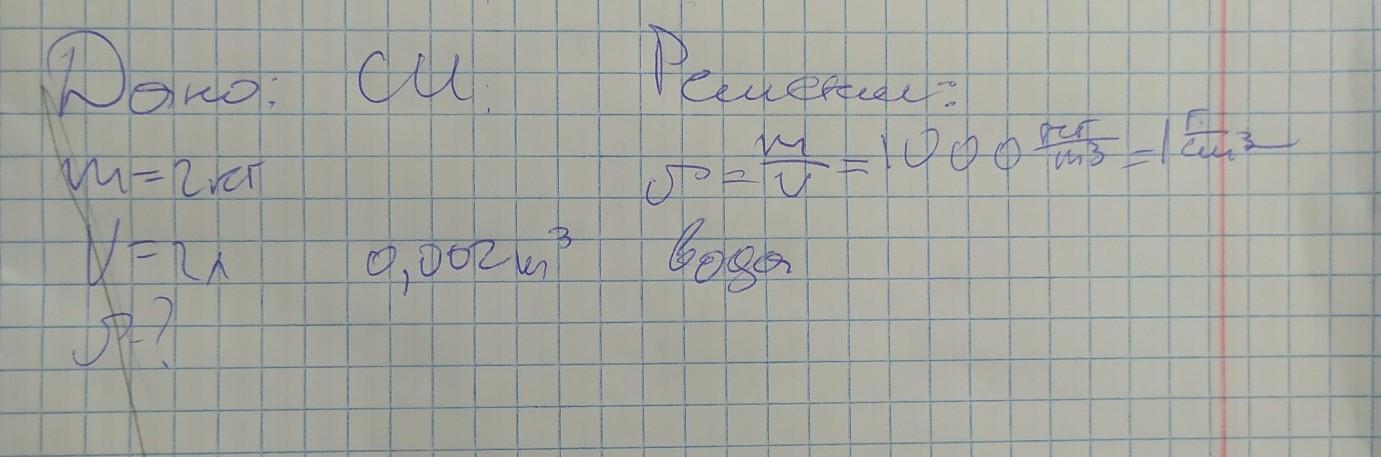 Дано: СИ: Решение:
m = 2 кг
ρ = m/V = 1000 кг/м³ = 1 г/см³
V = 2 л 0,002 м³ вода
ρ - ?